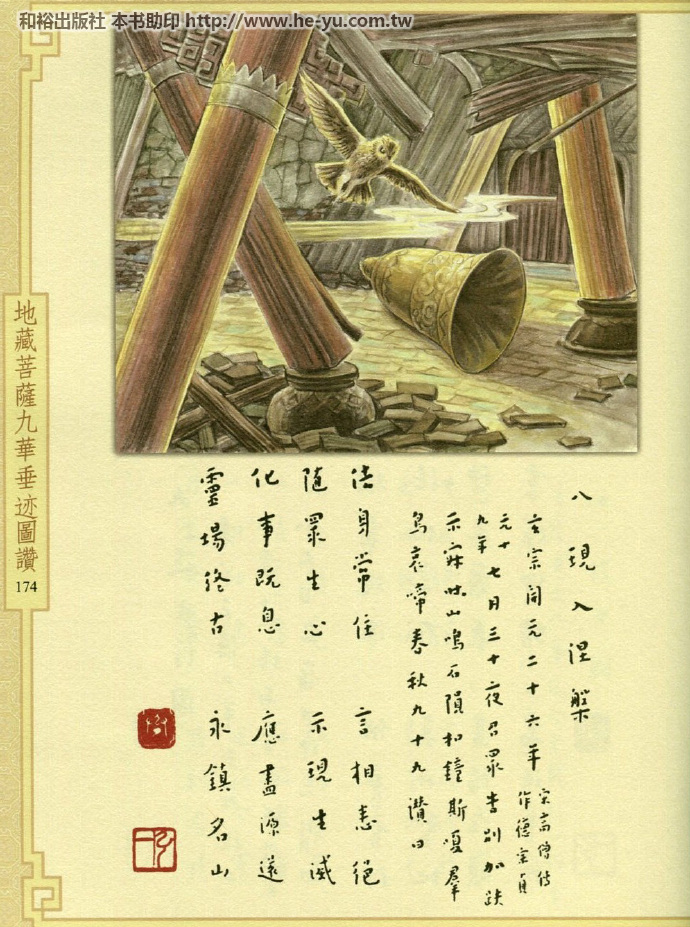 和裕出版社 本书助印 http://www.he-yu.com.tw
八現入涅槃
玄宗開元二十六年 宋高僧傳作德宗貞
元十九年 七月三十夜召眾告別加趺
示寂時山鳴石隕扣鐘斯嗄羣
鳥哀啼春秋九十九 讚曰
法身常住 言相悉絕
隨眾生心 示現生滅
化事既息 應盡源還
靈場終古 永鎮名山
弘一
地藏菩薩九華垂迹圖讚
174